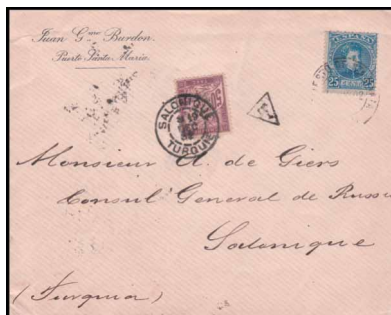 Juan Gmo Burdon
Puerto Santa Maria.
ESPAÑA
25 CENT 25
SALONIQUE
TURQUIE
T
Monsieur A. de Giers
Consul General de Russie
Salonique
(Turquia)